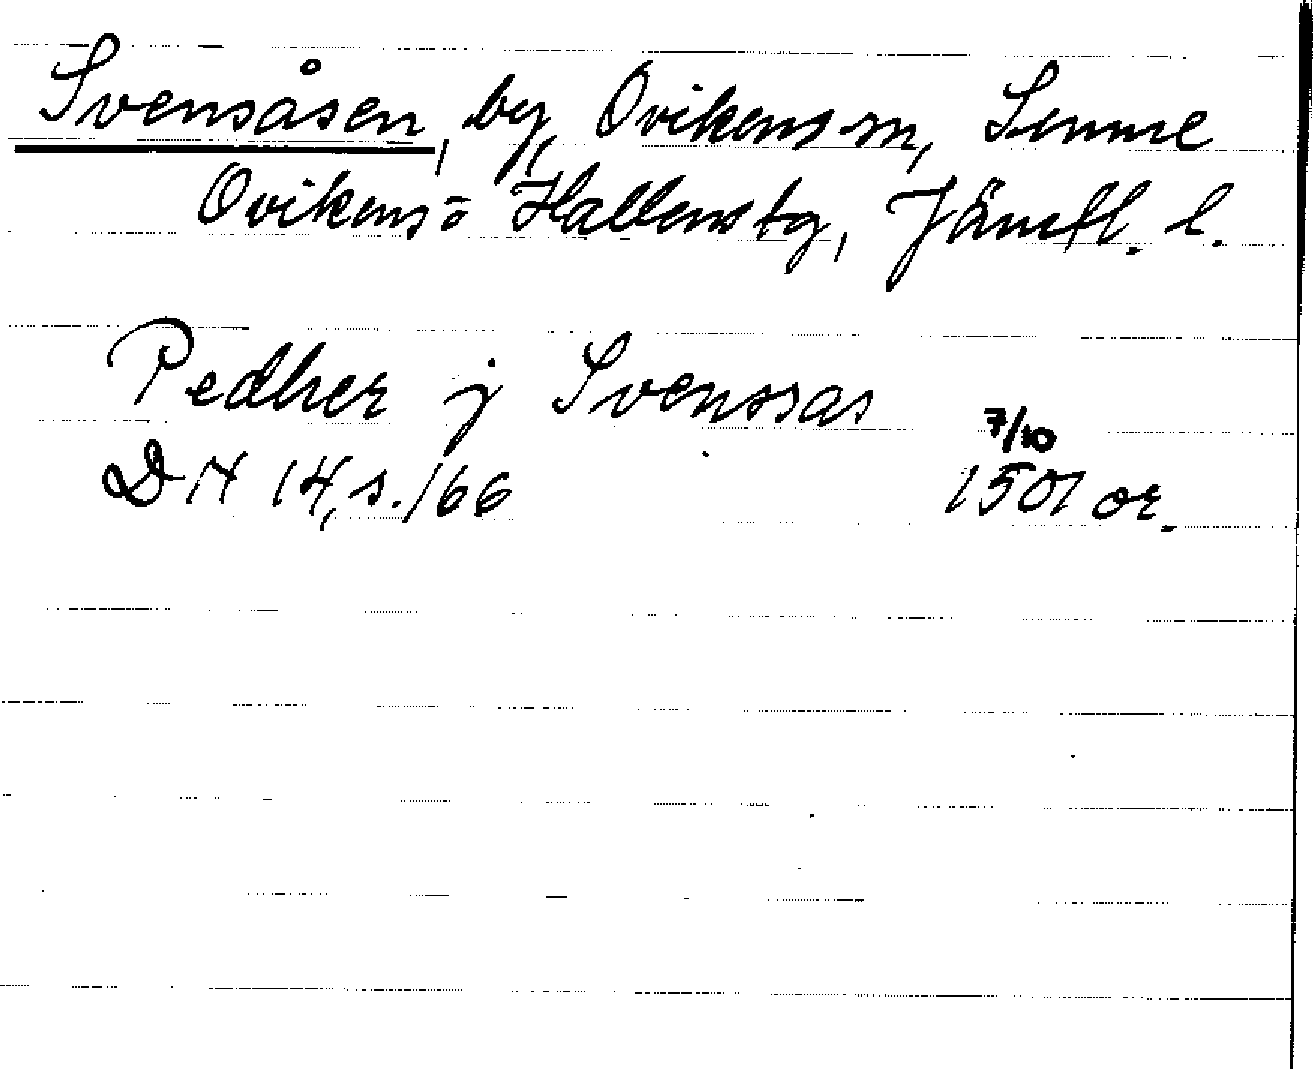 Svensåsen, by, Ovikens sn, Sunne
Ovikens o Hallens tg, Jämtl. l.
Pedher j Svenssas
7/10
DN 14, s. 166 1501 or.